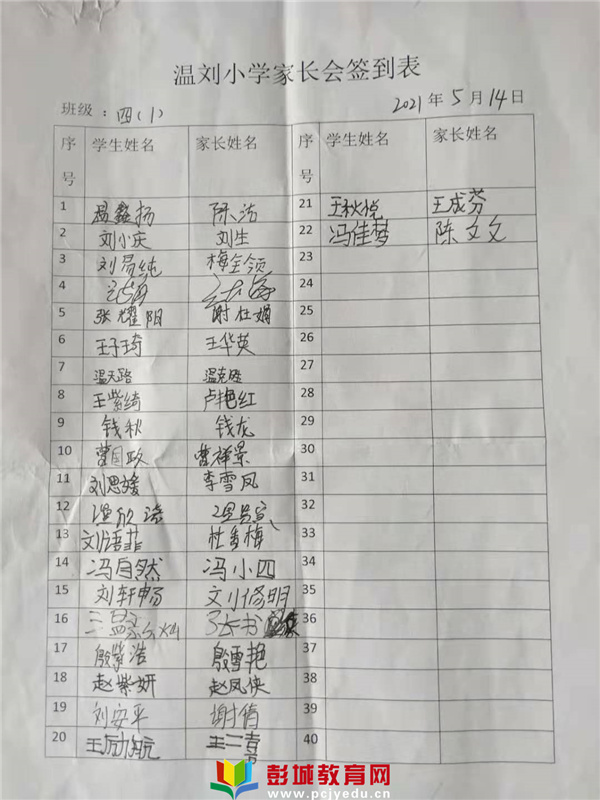 温刘小学家长会签到表
班级：四(1) 2021年5月14日
序号 学生姓名 家长姓名 序号 学生姓名 家长姓名
1 温鑫扬 陈洁 21 王秋悦 王成芬
2 刘小庆 刘生 22 冯佳梦 陈文文
3 刘易纯 梅金领 23
4 24
5 张耀阳 谢杜娟 25
6 王子琦 王华英 26
7 温天路 温克胜 27
8 王紫绮 卢艳红 28
9 钱秋 钱龙 29
10 曹国政 曹祥景 30
11 刘思媛 李雪凤 31
12 32
13 刘语菲 杜秀梅 33
14 冯自然 冯小四 34
15 刘轩畅 刘修明 35
16 张书 36
17 殷紫浩 殷雪艳 37
18 赵紫妍 赵凤侠 38
19 刘安平 谢倩 39
20 王励航 40
彭城教育网
www.pcjyedu.cn